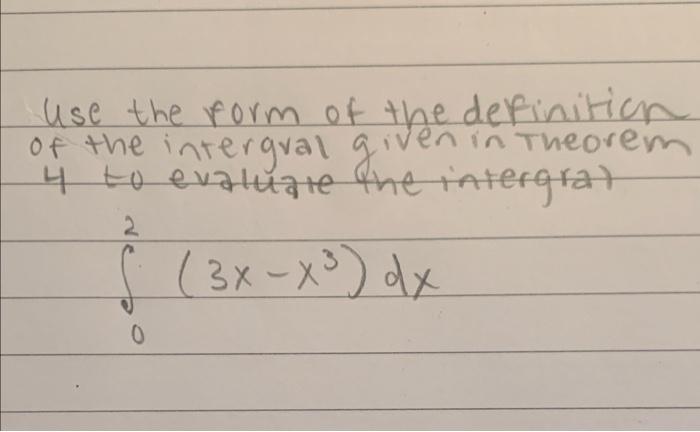 use the form of the definition
of the intergral given in Theorem
4 to evaluate the intergral
2
∫ (3x - x³) dx
0